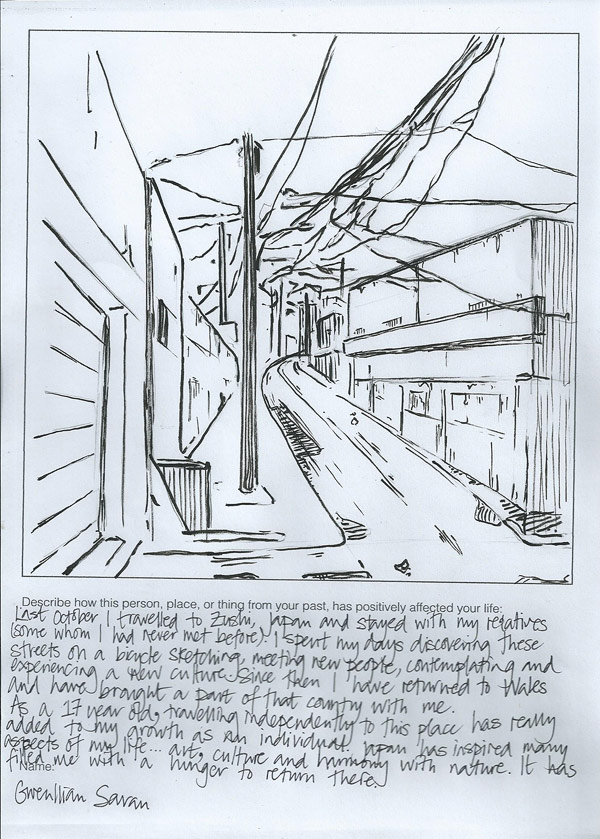 Describe how this person, place, or thing from your past, has positively affected your life:
Last October I travelled to Zushi, Japan and stayed with my relatives
(some whom I had never met before). I spent my days discovering these
streets on a bicycle sketching, meeting new people, contemplating and
experiencing a new culture. Since then I have returned to Wales
and have brought a part of that country with me.
As a 17 year old, travelling independently to this place has really
added to my growth as an individual. Japan has inspired many
aspects of my life... art, culture and harmony with nature. It has
filled me with a hunger to return there.
Name:
Gwenllian Savan